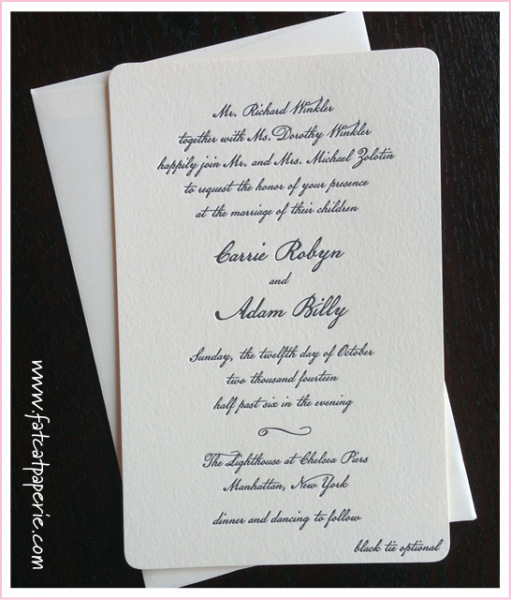 Mr. Richard Winkler
together with Ms. Dorothy Winkler
happily join Mr. and Mrs. Michael Zolotin
to request the honor of your presence
at the marriage of their children
Carrie Robyn
and
Adam Billy
Sunday, the twelfth day of October
two thousand fourteen
half past six in the evening
The Lighthouse at Chelsea Piers
Manhattan, New York
dinner and dancing to follow
black tie optional
www.fatcatpaperie.com